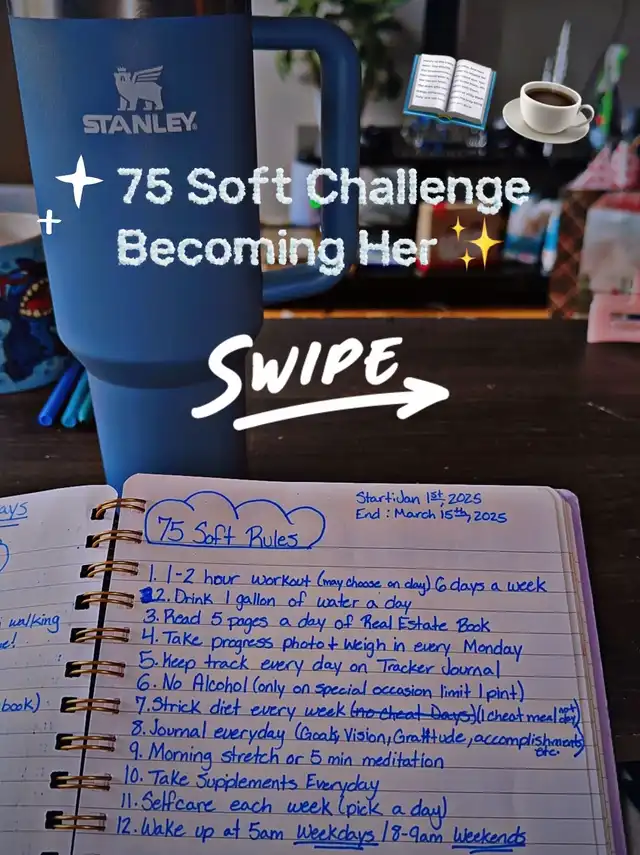 STANLEY
75 Soft Challenge
Becoming Her
SWIPE
ays
walking
e!
book)
75 Soft Rules
Start: Jan 1st, 2025
End: March 15th, 2025
1. 1-2 hour workout (may choose on day) 6 days a week
2. Drink 1 gallon of water a day
3. Read 5 pages a day of Real Estate Book
4. Take progress photo + weigh in every Monday
5. Keep track every day on Tracker Journal
6. No Alcohol (only on special occasion limit 1 pint)
7. Strick diet every week (no cheat Days) (1 cheat meal not day)
8. Journal everyday (Goals, Vision, Gratitude, accomplishments etc.
9. Morning stretch or 5 min meditation
10. Take Supplements Everyday
11. Selfcare each week (pick a day)
12. Wake up at 5am Weekdays / 8-9am Weekends